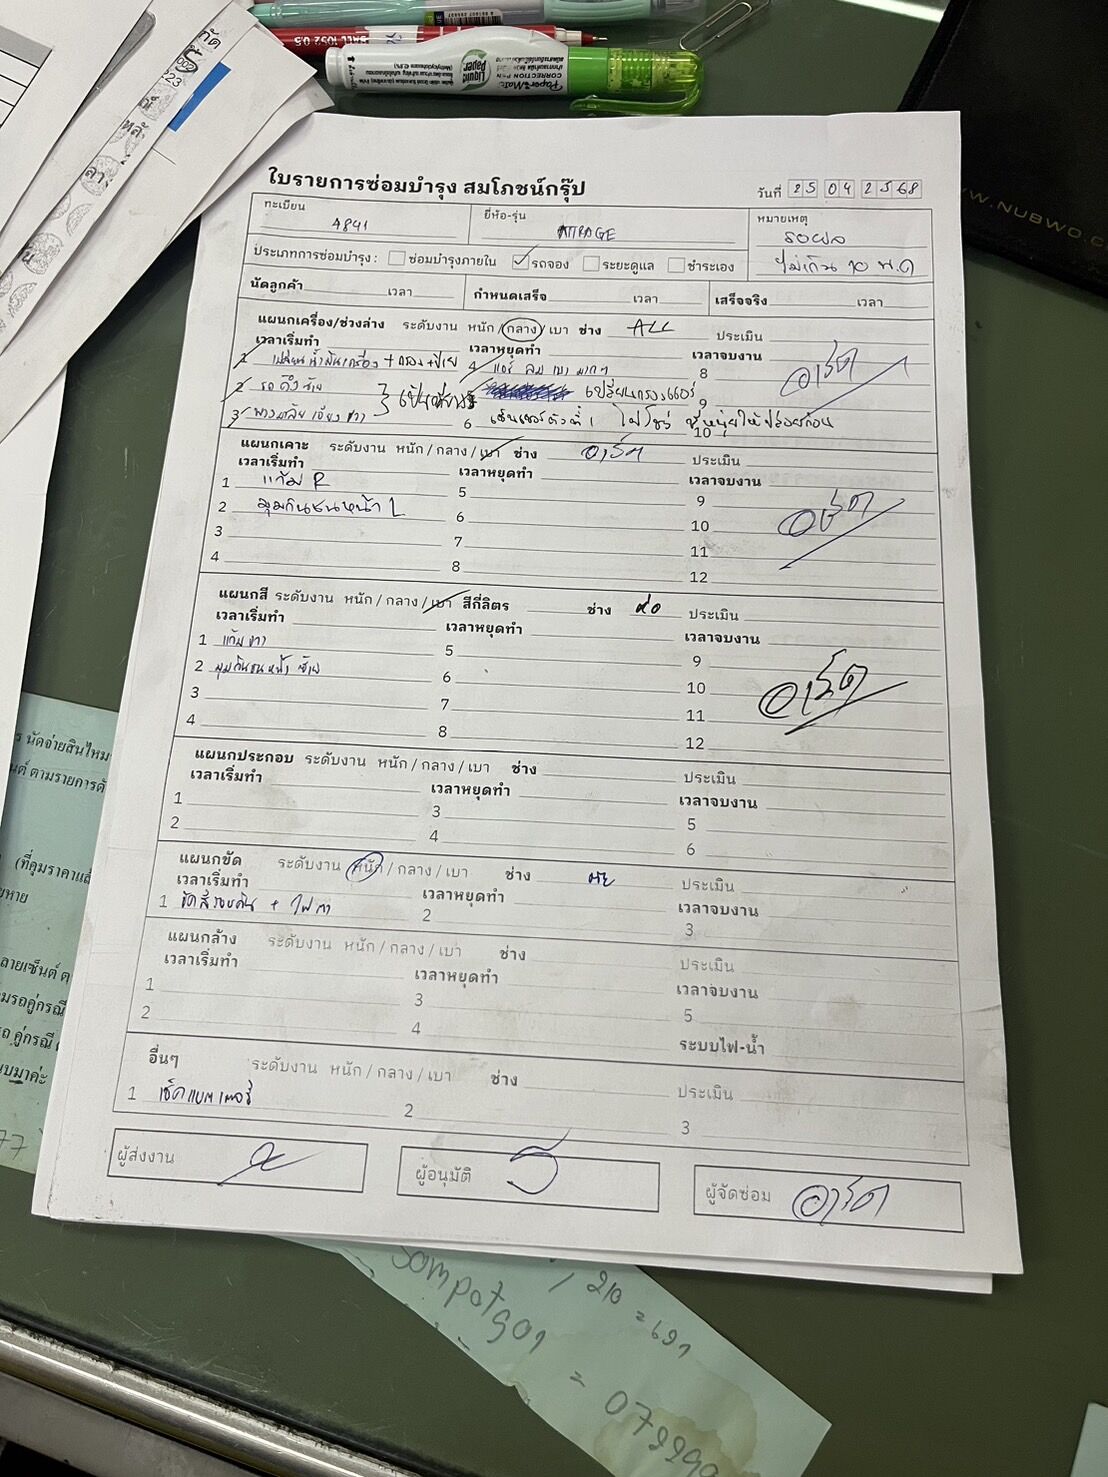 BALL 1052 0.5
Liquid Paper
CORRECTION PEN
Paper Mate
WWW.NUBWO.C
ใบรายการซ่อมบำรุง สมโภชน์กรุ๊ป
วันที่ 25 04 2568
ทะเบียน 4841 ยี่ห้อ-รุ่น ATTRAGE หมายเหตุ
รอผล
ไม่เกิน 10 พ.ค
ประเภทการซ่อมบำรุง : ซ่อมบำรุงภายใน รถจอง ระยะดูแล ชำระเอง
นัดลูกค้า เวลา กำหนดเสร็จ เวลา เสร็จจริง เวลา
แผนกเครื่อง/ช่วงล่าง ระดับงาน หนัก / กลาง / เบา ช่าง ALL ประเมิน
เวลาเริ่มทำ เวลาหยุดทำ เวลาจบงาน
1 เปลี่ยนน้ำมันเครื่อง + กรอง 4 แอร์ ลม เบา มาก ๆ 8
2 รถดึงซ้าย เปลี่ยนกรองแอร์ 9
3 พวงมาลัย เอียง ขวา 6 เซ็นเซอร์ตัวที่ 1 ไฟโชว์ 10
แผนกเคาะ ระดับงาน หนัก / กลาง / เบา ช่าง อาร์ต ประเมิน
เวลาเริ่มทำ เวลาหยุดทำ เวลาจบงาน
1 แก้ม R 5 9
2 มุมกันชนหน้า L 6 10 อาร์ต
3 7 11
4 8 12
แผนกสี ระดับงาน หนัก / กลาง / เบา สีกี่ลิตร ช่าง ประเมิน
เวลาเริ่มทำ เวลาหยุดทำ เวลาจบงาน
1 แก้มขวา 5 9
2 มุมกันชนหน้า ซ้าย 6 10 อาร์ต
3 7 11
4 8 12
แผนกประกอบ ระดับงาน หนัก / กลาง / เบา ช่าง ประเมิน
เวลาเริ่มทำ เวลาหยุดทำ เวลาจบงาน
1 3 5
2 4 6
แผนกขัด ระดับงาน หนัก / กลาง / เบา ช่าง ประเมิน
เวลาเริ่มทำ เวลาหยุดทำ เวลาจบงาน
1 ขัดสีรอบคัน + ไฟตา 2 3
แผนกล้าง ระดับงาน หนัก / กลาง / เบา ช่าง ประเมิน
เวลาเริ่มทำ เวลาหยุดทำ เวลาจบงาน
1 3 5
2 4 ระบบไฟ-น้ำ
อื่นๆ ระดับงาน หนัก / กลาง / เบา ช่าง ประเมิน
1 เช็คแบตเตอรี่ 2 3
ผู้ส่งงาน ผู้อนุมัติ ผู้จัดซ่อม อาร์ต
นัดจ่ายสินไหม
ตามรายการดั
(ที่คุมราคาแล้
ลายเซ็นต์
คู่กรณี